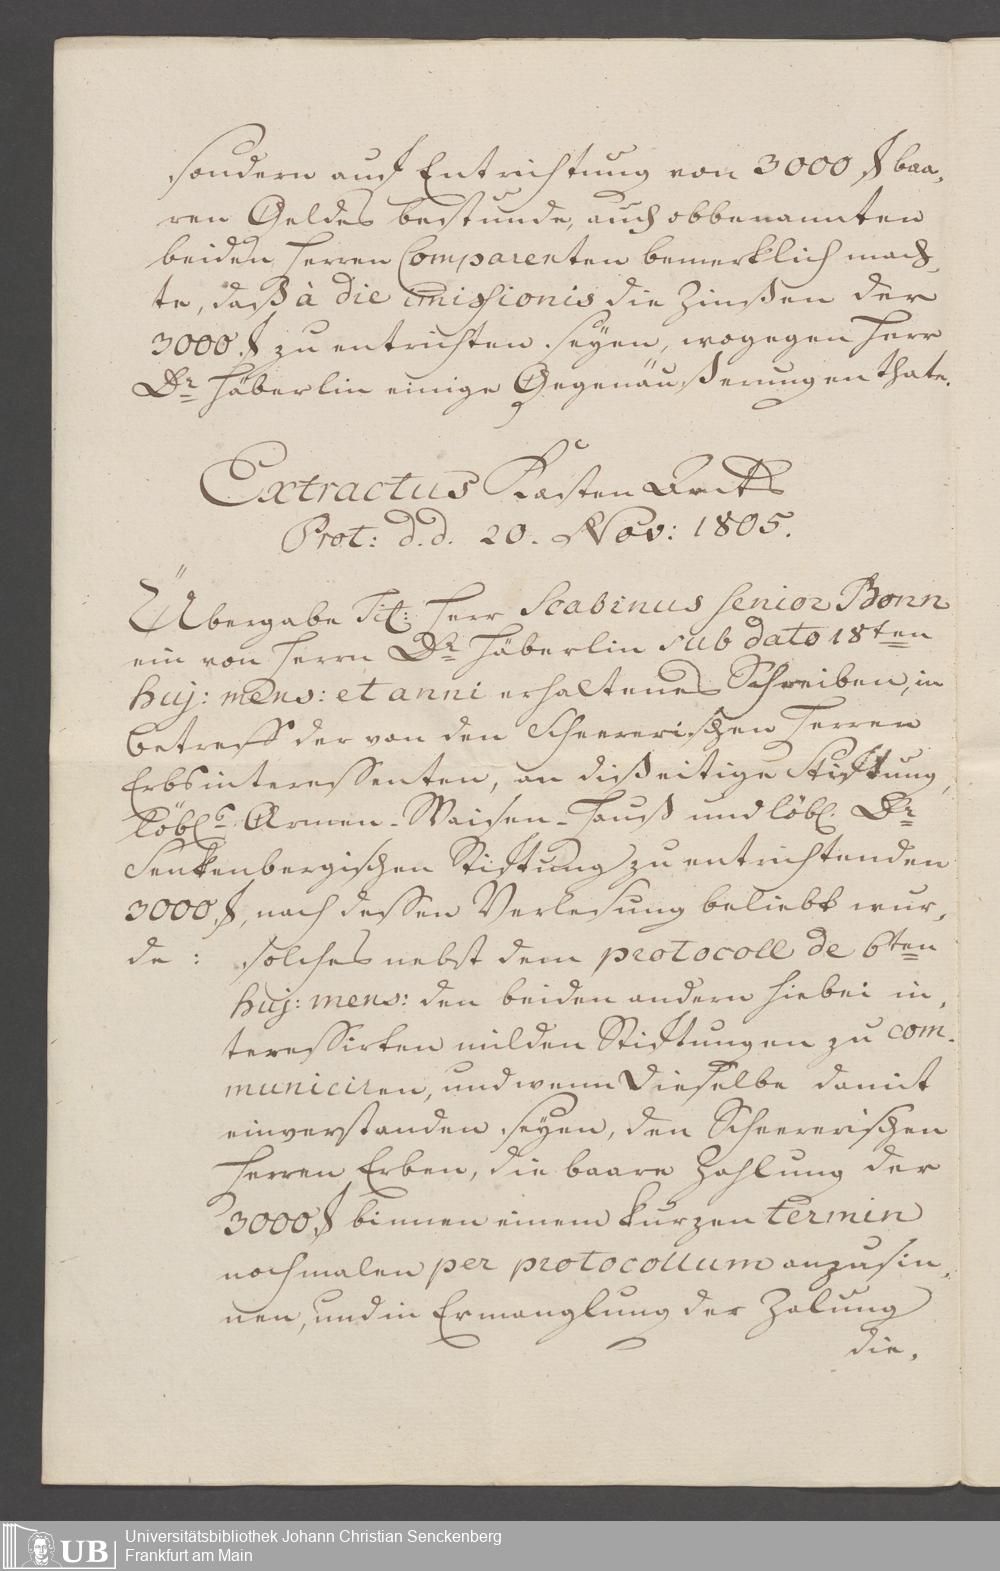 sondern auf Entrichtung von 3000 f baa-
ren Geldes bestünde, auch obbenannten
beiden Herren Comparenten bemerklich mach-
te, daß à die missionis die Zinßen der
3000 f zu entrichten seyen, wogegen Herr
Dr Häberlin einige Gegenäußerungen thate.
Extractus Kasten Amts
Prot: d.d. 20. Nov: 1805.
Übergabe Tit: Herr Scabinus senior Bonn
ein von Herrn Dr Häberlin sub dato 18ten
huj: mens: et anni erhaltenes Schreiben, in
betreff der von den Scheererischen Herren
Erbsinteressenten, an dießeitige Stiftung,
Löbl. Armen-Waisen-Hauß und löbl. Dr
Senkenbergischen Stiftung zu entrichtenden
3000 f, nach dessen Verlesung beliebt wur-
de: solches nebst dem protocoll de 6ten
huj: mens: den beiden andern hiebei in-
teressirten milden Stiftungen zu com-
municiren, und wenn Dieselbe damit
einverstanden seyen, den Scheererischen
Herren Erben, die baare Zahlung der
3000 f binnen einem kurzen termin
nochmalen per protocollum anzusin-
nen, und in Ermanglung der Zalung
die,
UB
Universitätsbibliothek Johann Christian Senckenberg
Frankfurt am Main